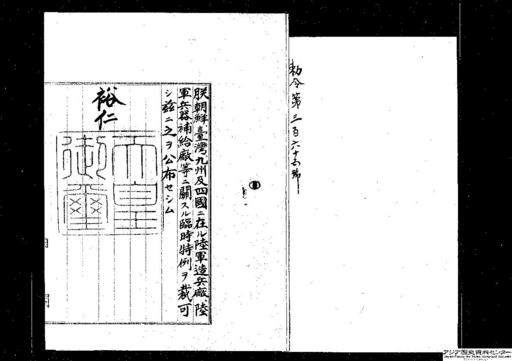 勅令第三百六十五號
朕朝鮮臺灣九州及四國ニ在ル陸軍造兵廠陸
軍兵器補給廠等ニ關スル臨時特例ヲ裁可
シ茲ニ之ヲ公布セシム
裕仁
天皇
御璽
アジア歴史資料センター